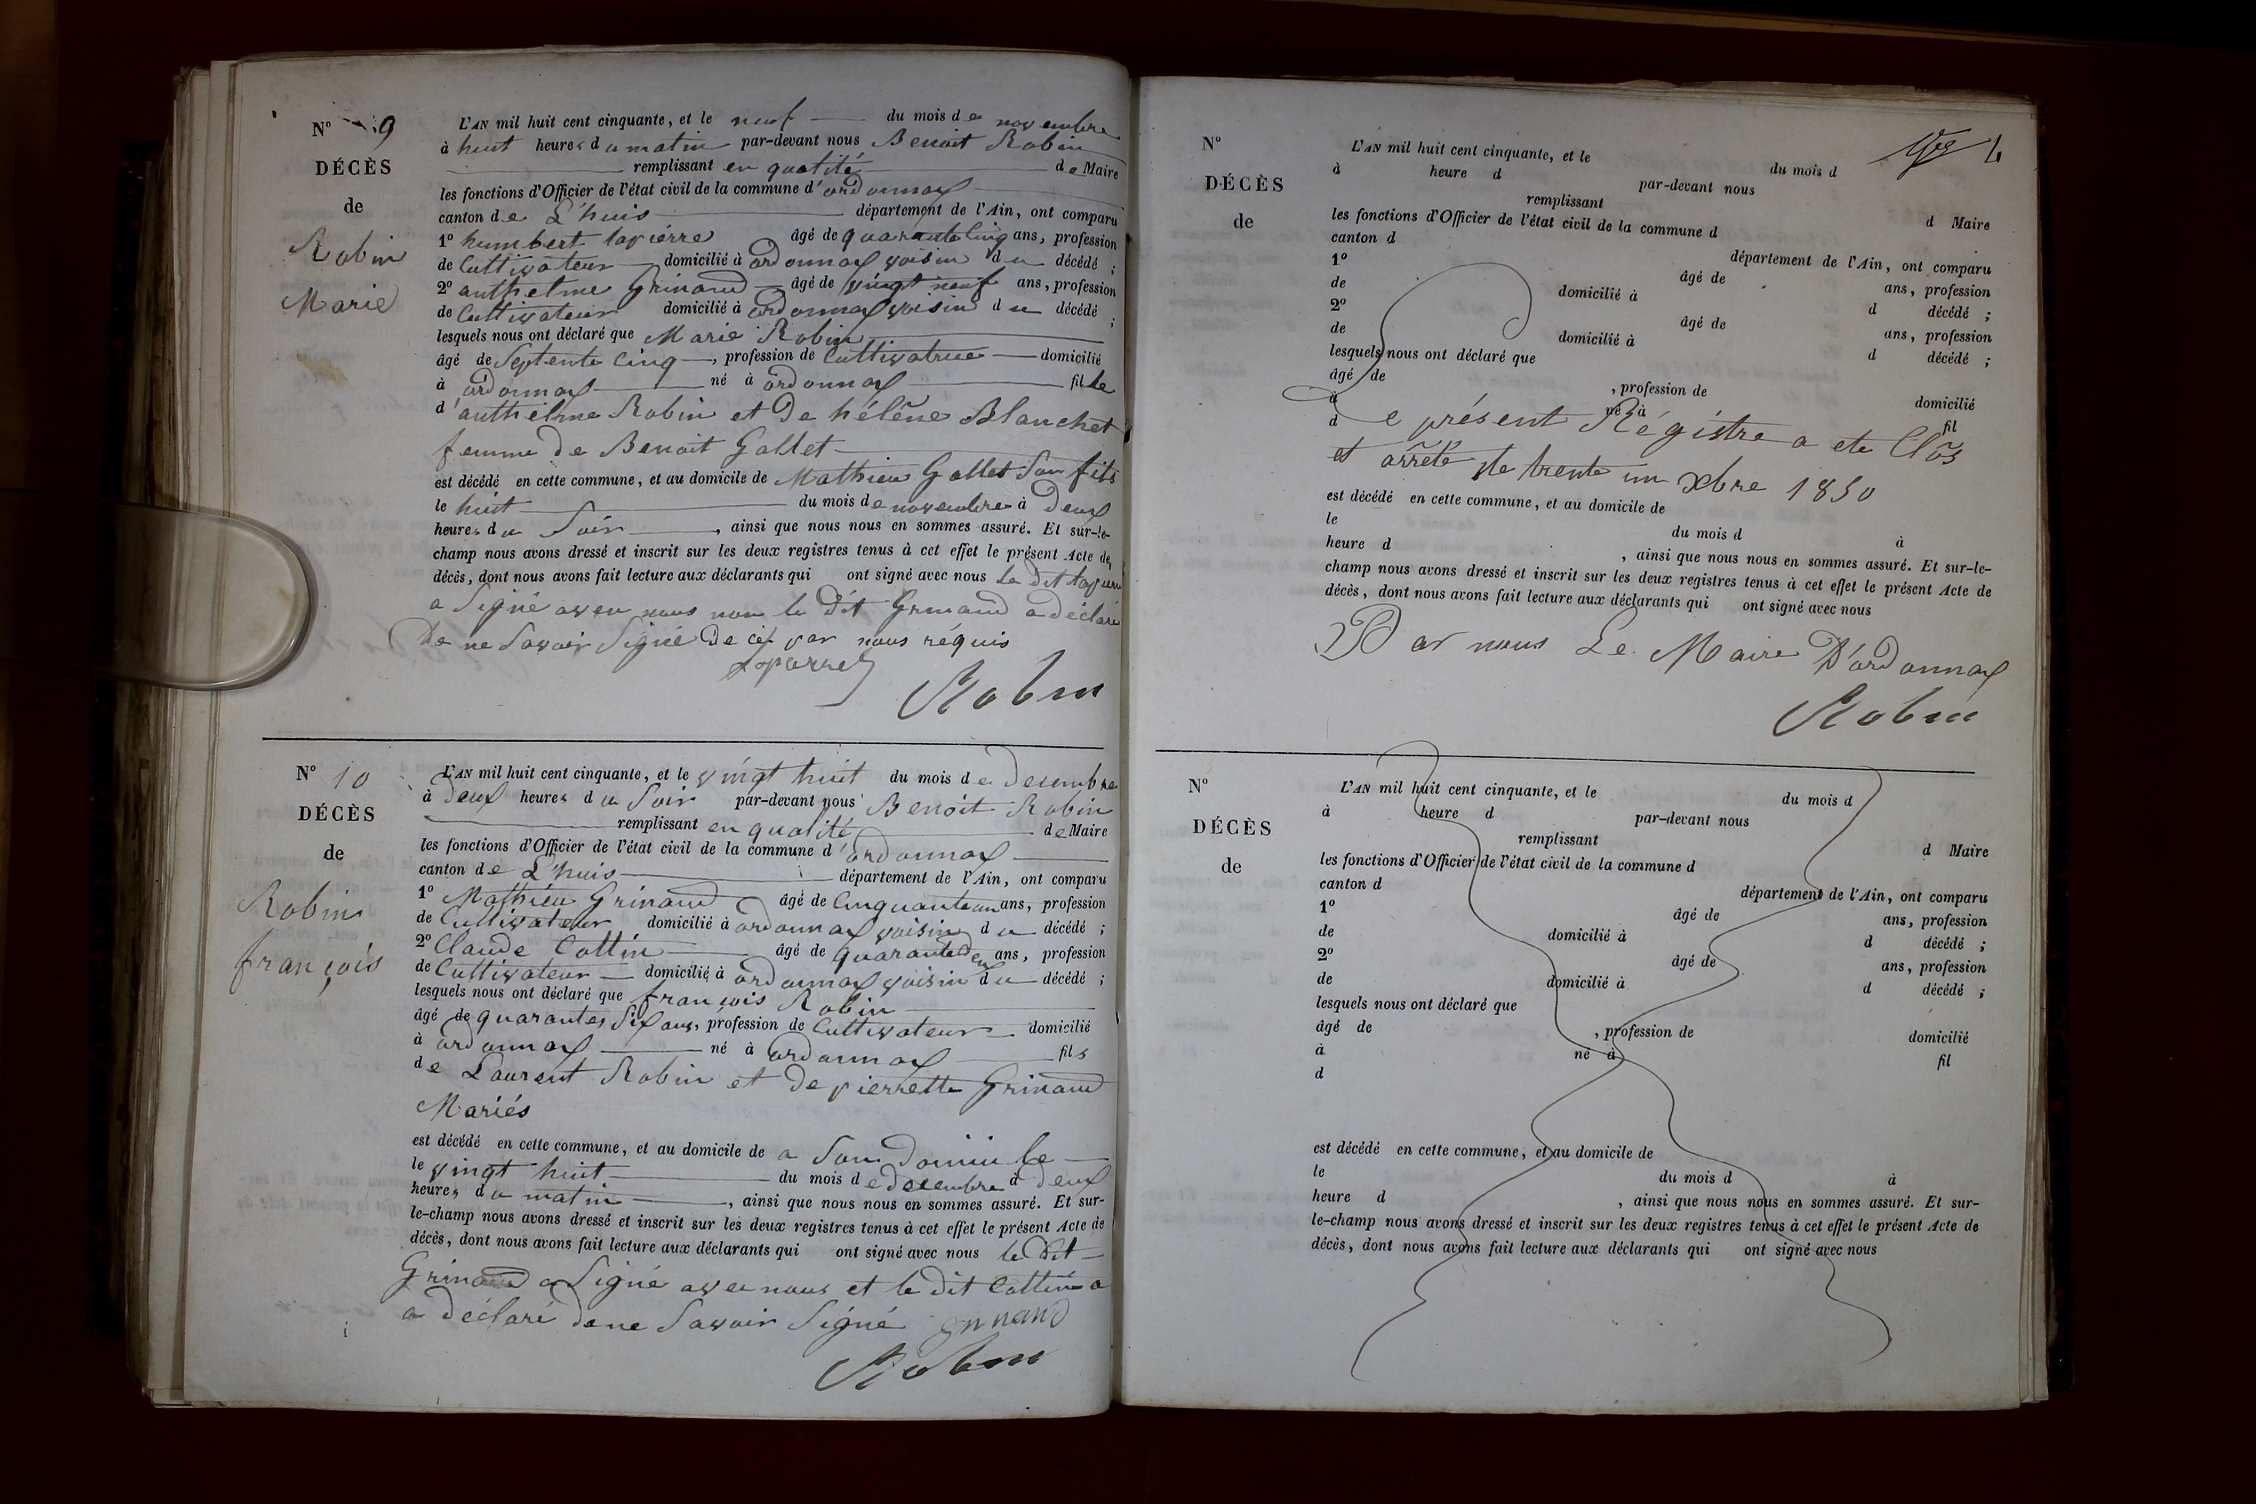 N° 9
DÉCÈS
de
Robin
Marie
L'AN mil huit cent cinquante, et le neuf du mois de novembre
à huit heures du matin par-devant nous Benoit Robin
remplissant en qualité de Maire
les fonctions d'Officier de l'état civil de la commune d'ordonnax
canton de L'huis département de l'Ain, ont comparu
1° humbert lapierre âgé de quarante cinq ans, profession
de Cultivateur domicilié à ordonnax voisin du décédé ;
2° anthelme Grinand âgé de vingt neuf ans, profession
de Cultivateur domicilié à ordonnax voisin du décédé ;
lesquels nous ont déclaré que Marie Robin
âgé de Septente Cinq, profession de Cultivatrice domicilié
à ordonnax né à ordonnax fille
d'anthelme Robin et De hélène Blanchet
femme De Benoit Gallet
est décédé en cette commune, et au domicile de Mathieu Gallet Son fils
le huit du mois de novembre à Deux
heures du Soir, ainsi que nous nous en sommes assuré. Et sur-le-
champ nous avons dressé et inscrit sur les deux registres tenus à cet effet le présent Acte de
décès, dont nous avons fait lecture aux déclarants qui ont signé avec nous le Dit
a Signé avec nous non le Dit Grinand a déclaré
De ne Savoir Signé De ce par nous réquis
Robin
N° 10
DÉCÈS
de
Robin
françois
L'AN mil huit cent cinquante, et le vingt huit du mois de Decembre
à Deux heures du Soir par-devant nous Benoit Robin
remplissant en qualité de Maire
les fonctions d'Officier de l'état civil de la commune d'ordonnax
canton de L'huis département de l'Ain, ont comparu
1° Mathieu Grinand âgé de Cinquante un ans, profession
de Cultivateur domicilié à ordonnax voisin du décédé ;
2° Claude Cottin âgé de quarante Deux ans, profession
de Cultivateur domicilié à ordonnax voisin du décédé ;
lesquels nous ont déclaré que françois Robin
âgé de quarantes Six ans, profession de Cultivateur domicilié
à ordonnax né à ordonnax fils
de Laurent Robin et De pierrette Grinand
Mariés
est décédé en cette commune, et au domicile de a Son Domicile
le vingt huit du mois de decembre à Deux
heures du matin, ainsi que nous nous en sommes assuré. Et sur-
le-champ nous avons dressé et inscrit sur les deux registres tenus à cet effet le présent Acte de
décès, dont nous avons fait lecture aux déclarants qui ont signé avec nous le Dit
Grinand a Signé avec nous et le Dit Cottin a
a Déclaré De ne Savoir Signé Grinand
Robin
N°
DÉCÈS
de
L'AN mil huit cent cinquante, et le du mois d
à heure d par-devant nous
remplissant d Maire
les fonctions d'Officier de l'état civil de la commune d
canton d département de l'Ain, ont comparu
1° âgé de ans, profession
de domicilié à d décédé ;
2° âgé de ans, profession
de domicilié à d décédé ;
lesquels nous ont déclaré que
âgé de , profession de domicilié
à né à fil
d
Le présent Régistre a ete Clos
et arrêté le trente un Xbre 1850
est décédé en cette commune, et au domicile de
le du mois d à
heure d , ainsi que nous nous en sommes assuré. Et sur-le-
champ nous avons dressé et inscrit sur les deux registres tenus à cet effet le présent Acte de
décès, dont nous avons fait lecture aux déclarants qui ont signé avec nous
Par nous Le Maire D'ordonnax
Robin
N°
DÉCÈS
de
L'AN mil huit cent cinquante, et le du mois d
à heure d par-devant nous
remplissant d Maire
les fonctions d'Officier de l'état civil de la commune d
canton d département de l'Ain, ont comparu
1° âgé de ans, profession
de domicilié à d décédé ;
2° âgé de ans, profession
de domicilié à d décédé ;
lesquels nous ont déclaré que
âgé de , profession de domicilié
à né à fil
d
est décédé en cette commune, et au domicile de
le du mois d à
heure d , ainsi que nous nous en sommes assuré. Et sur-
le-champ nous avons dressé et inscrit sur les deux registres tenus à cet effet le présent Acte de
décès, dont nous avons fait lecture aux déclarants qui ont signé avec nous